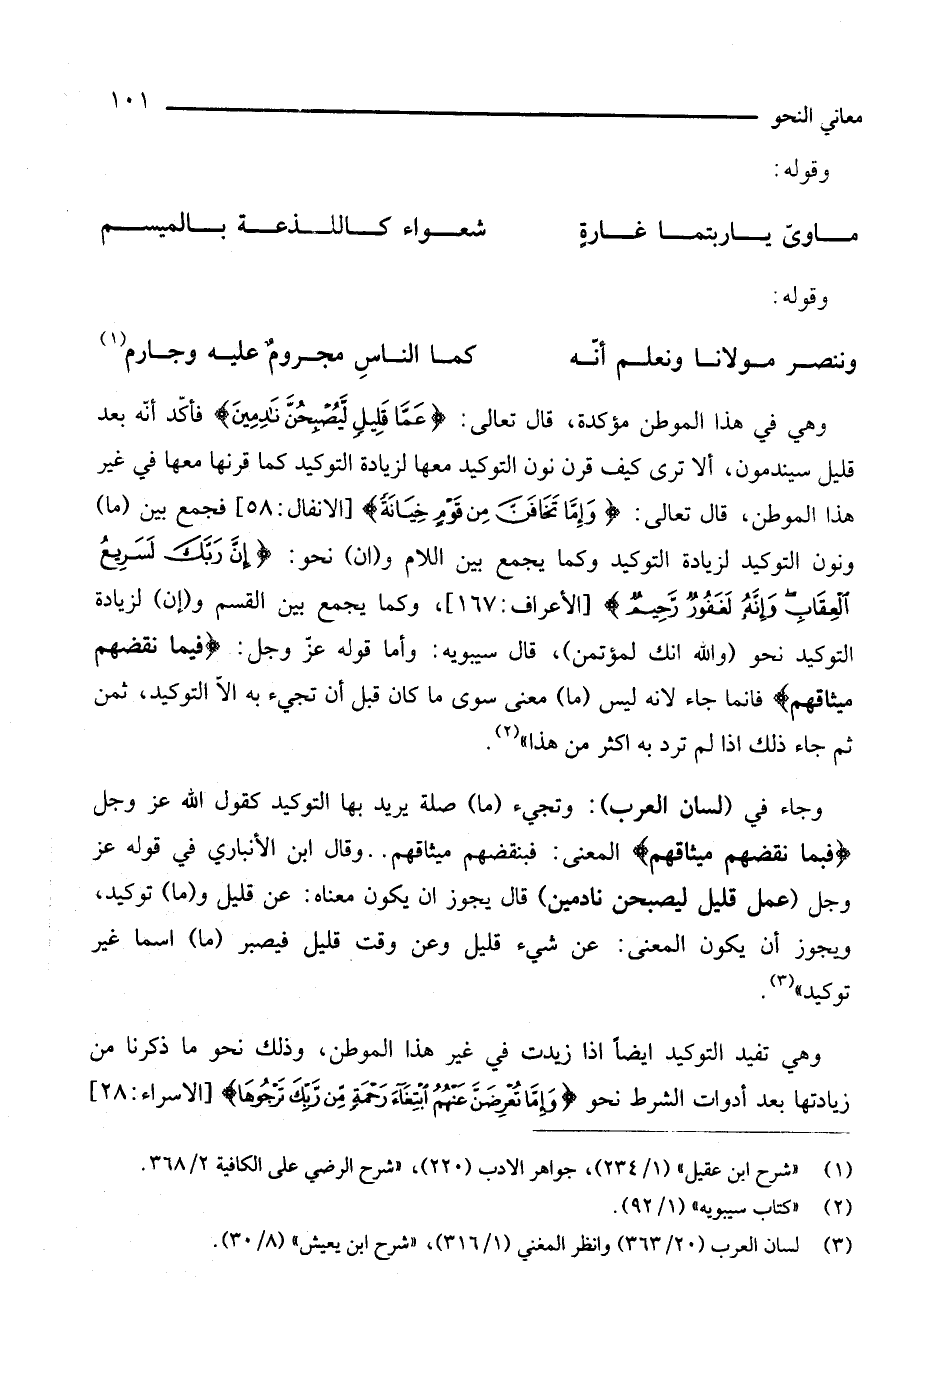 معاني النحو ١٠١
وقوله:
مـاويّ يـاربتمـا غـارةٍ شعـواء كـاللـذعـة بـالميسـم
وقوله:
وننصر مـولانـا ونعلـم أنّـه كمـا النـاسِ مجـرومٌ عليـه وجـارم(١)
وهي في هذا الموطن مؤكدة، قال تعالى: ﴿عَمَّا قَلِيلٍ لَّيُصْبِحُنَّ نَادِمِينَ﴾ فأكّد أنّه بعد
قليل سيندمون، ألا ترى كيف قرن نون التوكيد معها لزيادة التوكيد كما قرنها معها في غير
هذا الموطن، قال تعالى: ﴿وَإِمَّا تَخَافَنَّ مِن قَوْمٍ خِيَانَةً﴾ [الانفال:٥٨] فجمع بين (ما)
ونون التوكيد لزيادة التوكيد وكما يجمع بين اللام و(ان) نحو: ﴿إِنَّ رَبَّكَ لَسَرِيعُ
الْعِقَابِ وَإِنَّهُ لَغَفُورٌ رَّحِيمٌ﴾ [الأعراف:١٦٧]، وكما يجمع بين القسم و(إن) لزيادة
التوكيد نحو (والله انك لمؤتمن)، قال سيبويه: وأما قوله عزّ وجل: ﴿فيما نقضهم
ميثاقهم﴾ فانما جاء لانه ليس (ما) معنى سوى ما كان قبل أن تجيء به الاّ التوكيد، ثمن
ثم جاء ذلك اذا لم ترد به اكثر من هذا»(٢).
وجاء في (لسان العرب): وتجيء (ما) صلة يريد بها التوكيد كقول الله عز وجل
﴿فبما نقضهم ميثاقهم﴾ المعنى: فبنقضهم ميثاقهم..وقال ابن الأنباري في قوله عز
وجل (عمل قليل ليصبحن نادمين) قال يجوز ان يكون معناه: عن قليل و(ما) توكيد،
ويجوز أن يكون المعنى: عن شيء قليل وعن وقت قليل فيصبر (ما) اسما غير
توكيد»(٣).
وهي تفيد التوكيد ايضاً اذا زيدت في غير هذا الموطن، وذلك نحو ما ذكرنا من
زيادتها بعد أدوات الشرط نحو ﴿وَإِمَّا تُعْرِضَنَّ عَنْهُمُ ابْتِغَاءَ رَحْمَةٍ مِّن رَّبِّكَ تَرْجُوهَا﴾ [الاسراء:٢٨]
(١) «شرح ابن عقيل» (١/ ٢٣٤)، جواهر الادب (٢٢٠)، «شرح الرضي على الكافية ٢/ ٣٦٨.
(٢) «كتاب سيبويه» (١/ ٩٢).
(٣) لسان العرب (٢٠/ ٣٦٣) وانظر المغني (١/ ٣١٦)، «شرح ابن يعيش» (٨/ ٣٠).